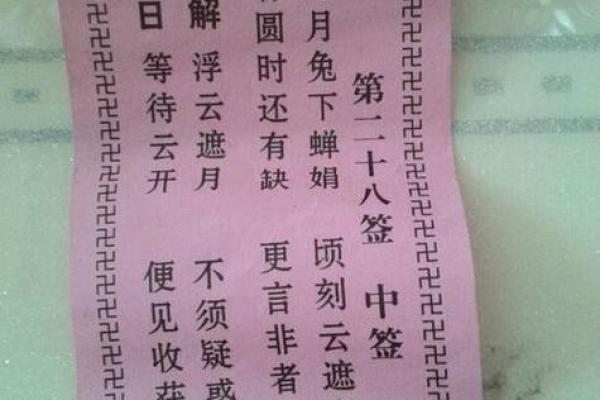 第二十八签 中签
月兔下蝉娟 顷刻云遮
圆时还有缺 更言非者
解 浮云遮月 不须疑惑
曰 等待云开 便见收获